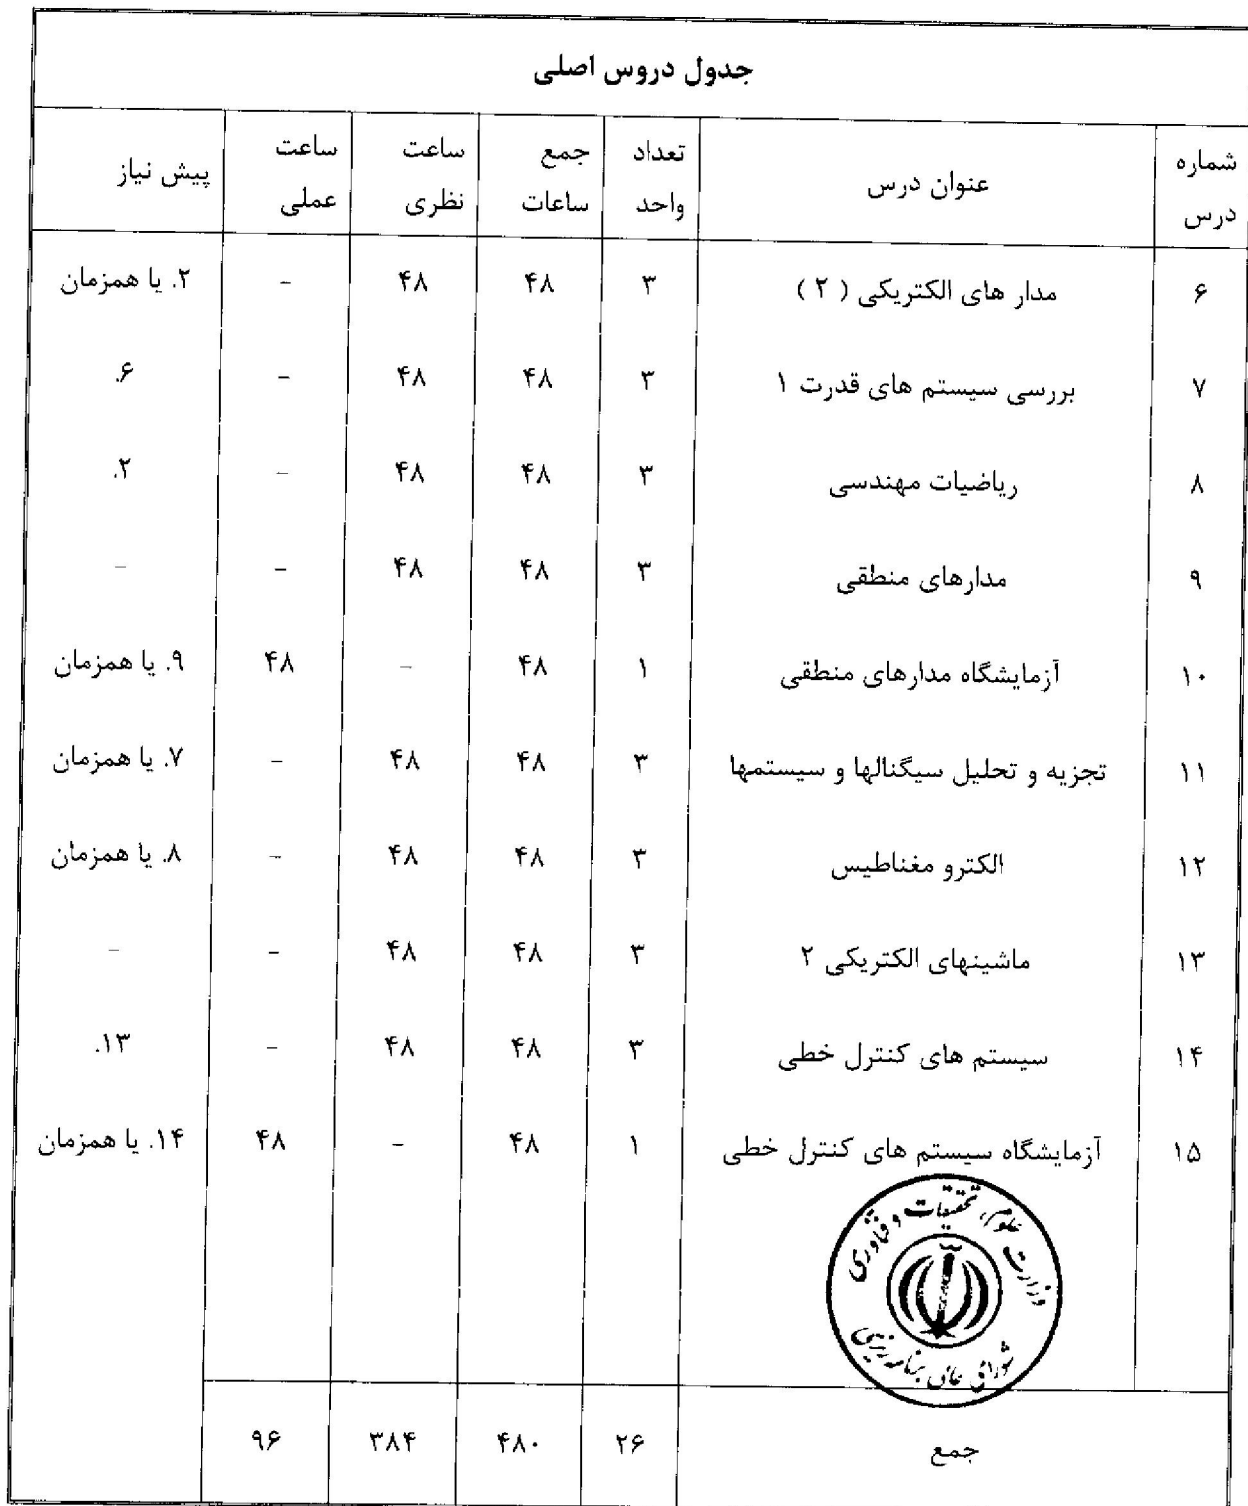 جدول دروس اصلی
شماره درس | عنوان درس | تعداد واحد | جمع ساعات | ساعت نظری | ساعت عملی | پیش نیاز
۶ | مدار های الکتریکی ( ۲ ) | ۳ | ۴۸ | ۴۸ | - | ۲. یا همزمان
۷ | بررسی سیستم های قدرت ۱ | ۳ | ۴۸ | ۴۸ | - | ۶.
۸ | ریاضیات مهندسی | ۳ | ۴۸ | ۴۸ | - | ۲.
۹ | مدارهای منطقی | ۳ | ۴۸ | ۴۸ | - | -
۱۰ | آزمایشگاه مدارهای منطقی | ۱ | ۴۸ | - | ۴۸ | ۹. یا همزمان
۱۱ | تجزیه و تحلیل سیگنالها و سیستمها | ۳ | ۴۸ | ۴۸ | - | ۷. یا همزمان
۱۲ | الکترو مغناطیس | ۳ | ۴۸ | ۴۸ | - | ۸. یا همزمان
۱۳ | ماشینهای الکتریکی ۲ | ۳ | ۴۸ | ۴۸ | - | -
۱۴ | سیستم های کنترل خطی | ۳ | ۴۸ | ۴۸ | - | ۱۳.
۱۵ | آزمایشگاه سیستم های کنترل خطی | ۱ | ۴۸ | - | ۴۸ | ۱۴. یا همزمان
وزارت علوم، تحقیقات و فناوری
شورای عالی برنامه ریزی
جمع | ۲۶ | ۴۸۰ | ۳۸۴ | ۹۶